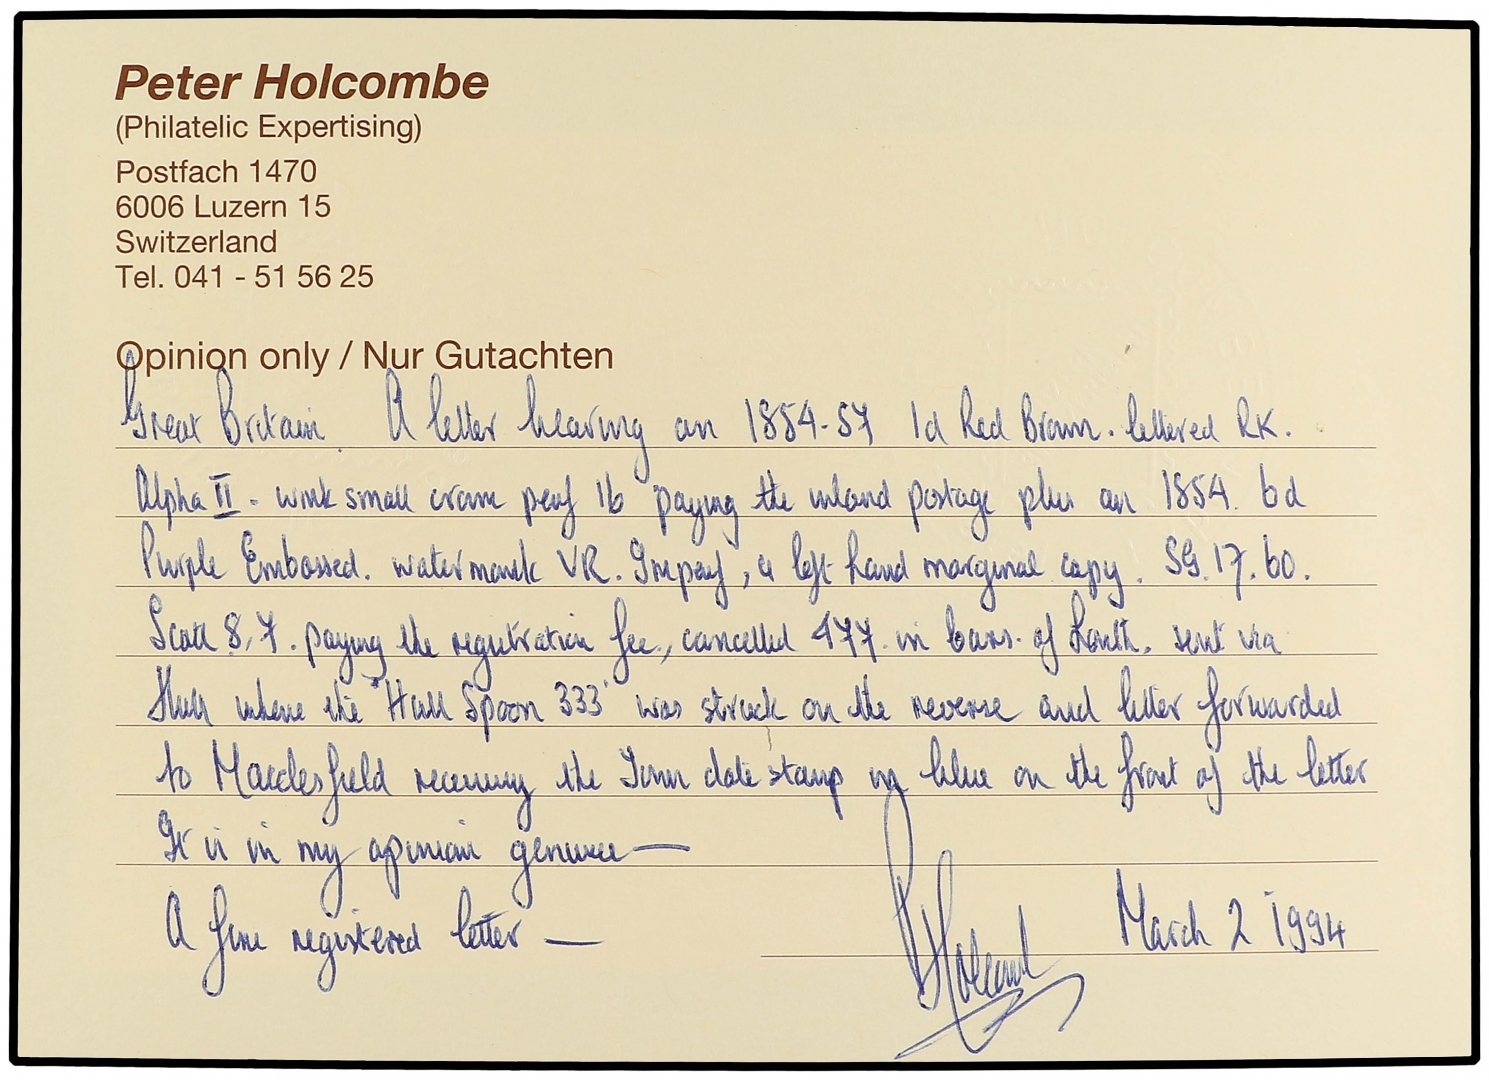 Peter Holcombe
(Philatelic Expertising)
Postfach 1470
6006 Luzern 15
Switzerland
Tel. 041 - 51 56 25
Opinion only / Nur Gutachten
Great Britain. A letter bearing an 1854-57 1d Red Brown. lettered RK.
Alpha II - wmk small crown perf 16 paying the inland postage plus an 1854. 6d
Purple Embossed. watermark VR. Imperf, a left hand marginal copy. SG.17.60.
Scott 8,7. paying the registration fee, cancelled 477 in bars of Louth. sent via
Hull where the "Hull Spoon 333" was struck on the reverse and letter forwarded
to Macclesfield receiving the Town date stamp in blue on the front of the letter
It is in my opinion genuine —
A fine registered letter —
March 2 1994